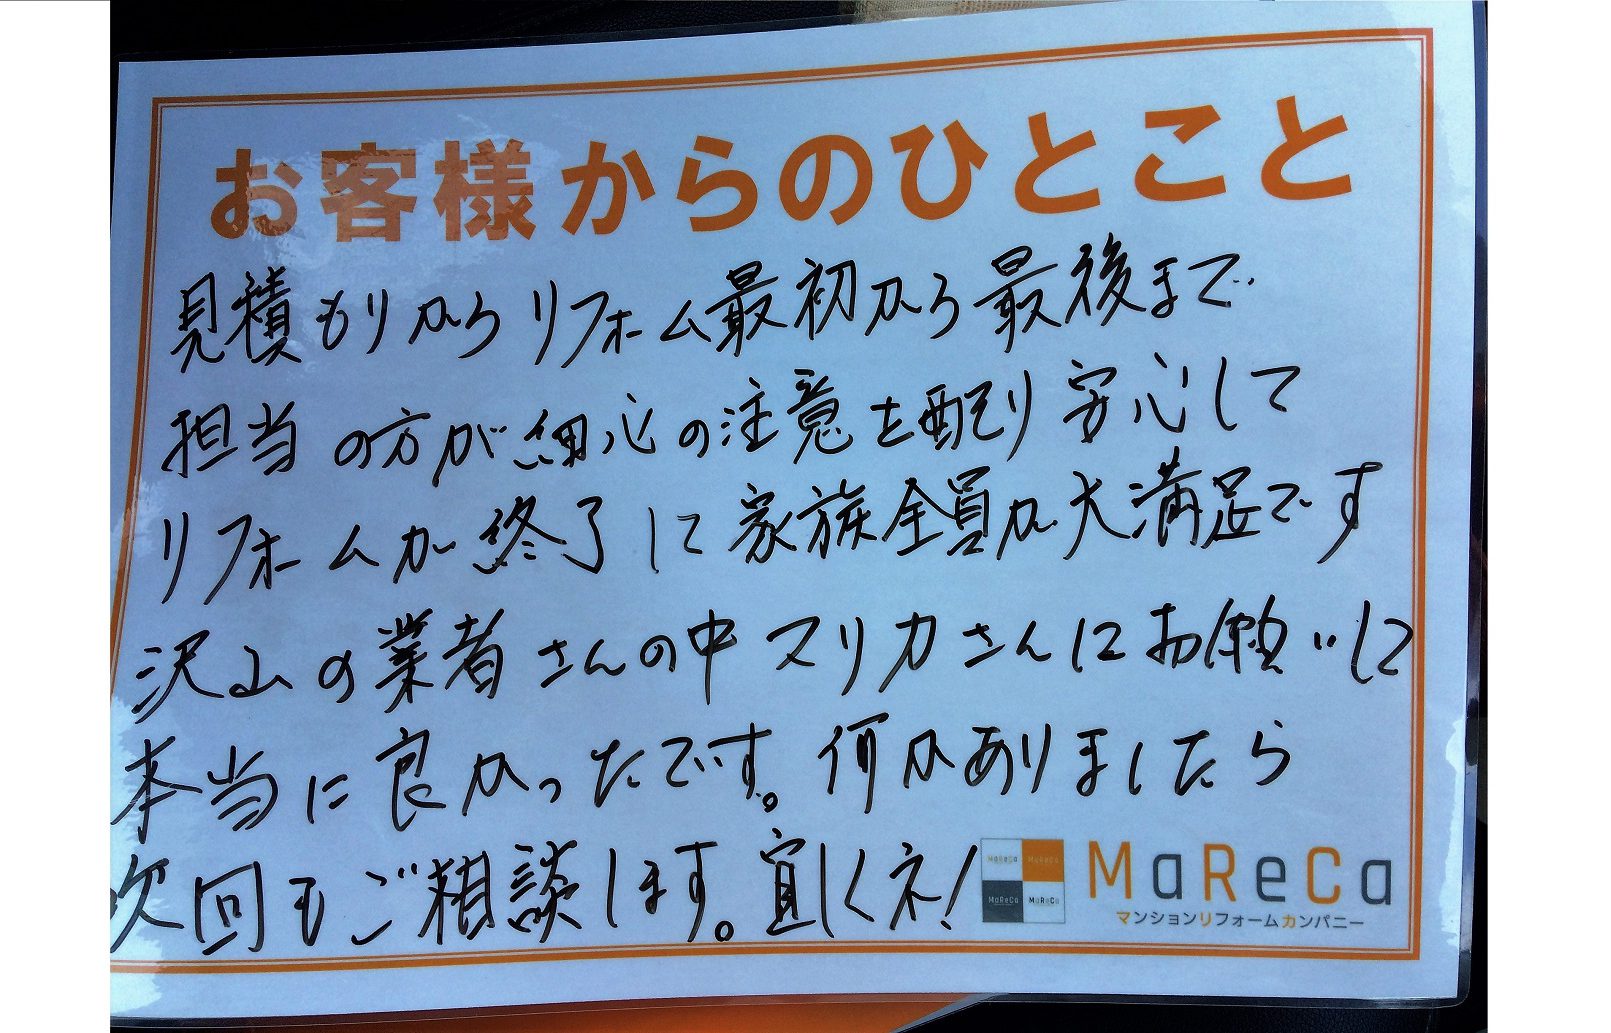 お客様からのひとこと
見積もりからリフォーム最初から最後まで
担当の方が細心の注意を配り安心して
リフォームが終了して家族全員が大満足です
沢山の業者さんの中マリカさんにお願いして
本当に良かったです。何かありましたら
次回もご相談します。宜しくネ!
MaReCa MaReCa
MaReCa MaReCa
MaReCa
マンションリフォームカンパニー